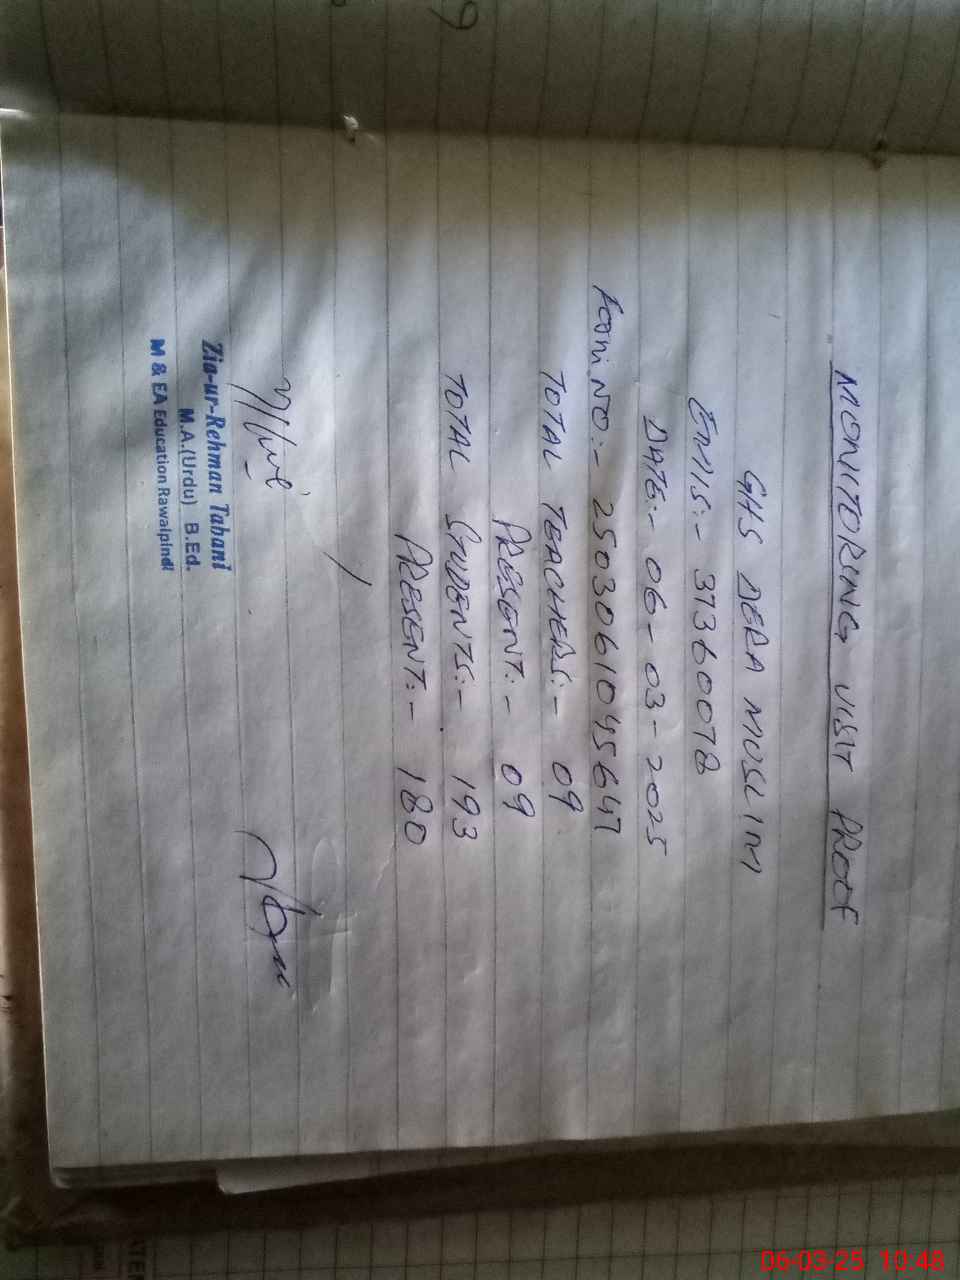 MONITORING VISIT PROOF
GHS DERA MUSLIM
EMIS:- 37360078
DATE:- 06-03-2025
FORM NO:- 2503061045647
TOTAL TEACHERS:- 09
PRESENT:- 09
TOTAL STUDENTS:- 193
PRESENT:- 180
Zia-ur-Rehman Tabani
M.A.(Urdu) B.Ed.
M & EA Education Rawalpindi
06-03-25 10:48